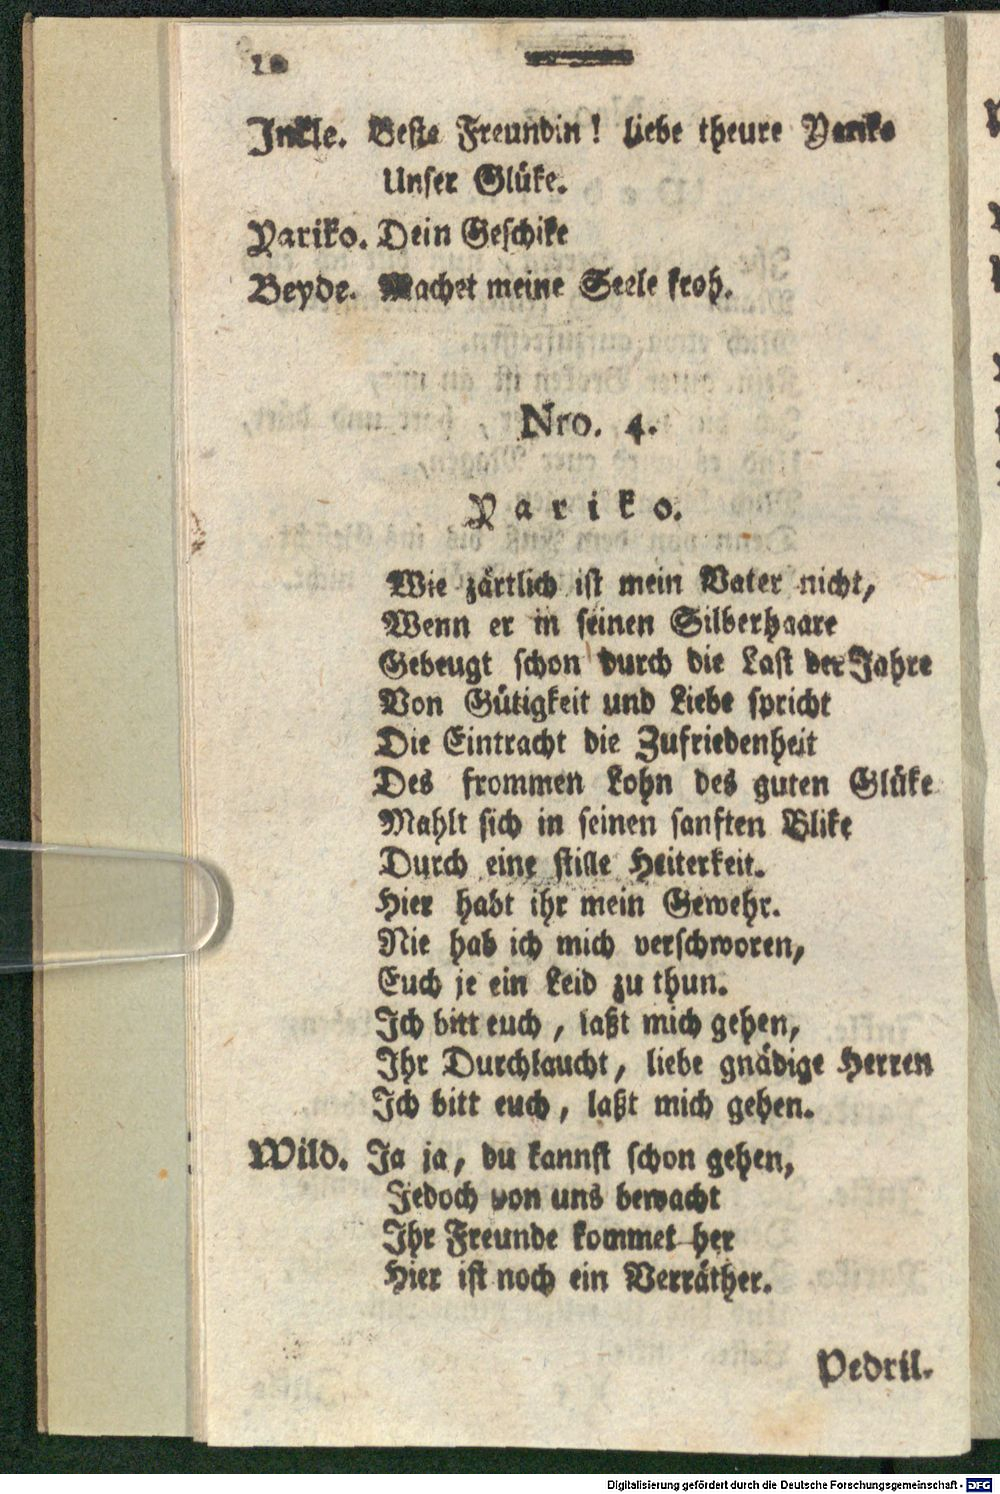 10
Inkle. Beste Freundin! liebe theure Yariko
Unser Glüke.
Yariko. Dein Geschike
Beyde. Machet meine Seele froh.
Nro. 4.
Yariko.
Wie zärtlich ist mein Vater nicht,
Wenn er in seinen Silberhaare
Gebeugt schon durch die Last der Jahre
Von Gütigkeit und Liebe spricht
Die Eintracht die Zufriedenheit
Des frommen Lohn des guten Glüke
Mahlt sich in seinen sanften Blike
Durch eine stille Heiterkeit.
Hier habt ihr mein Gewehr.
Nie hab ich mich verschworen,
Euch je ein Leid zu thun.
Ich bitt euch, laßt mich gehen,
Ihr Durchlaucht, liebe gnädige Herren
Ich bitt euch, laßt mich gehen.
Wild. Ja ja, du kannst schon gehen,
Jedoch von uns bewacht
Ihr Freunde kommet her
Hier ist noch ein Verräther.
Pedril.
Digitalisierung gefördert durch die Deutsche Forschungsgemeinschaft - DFG